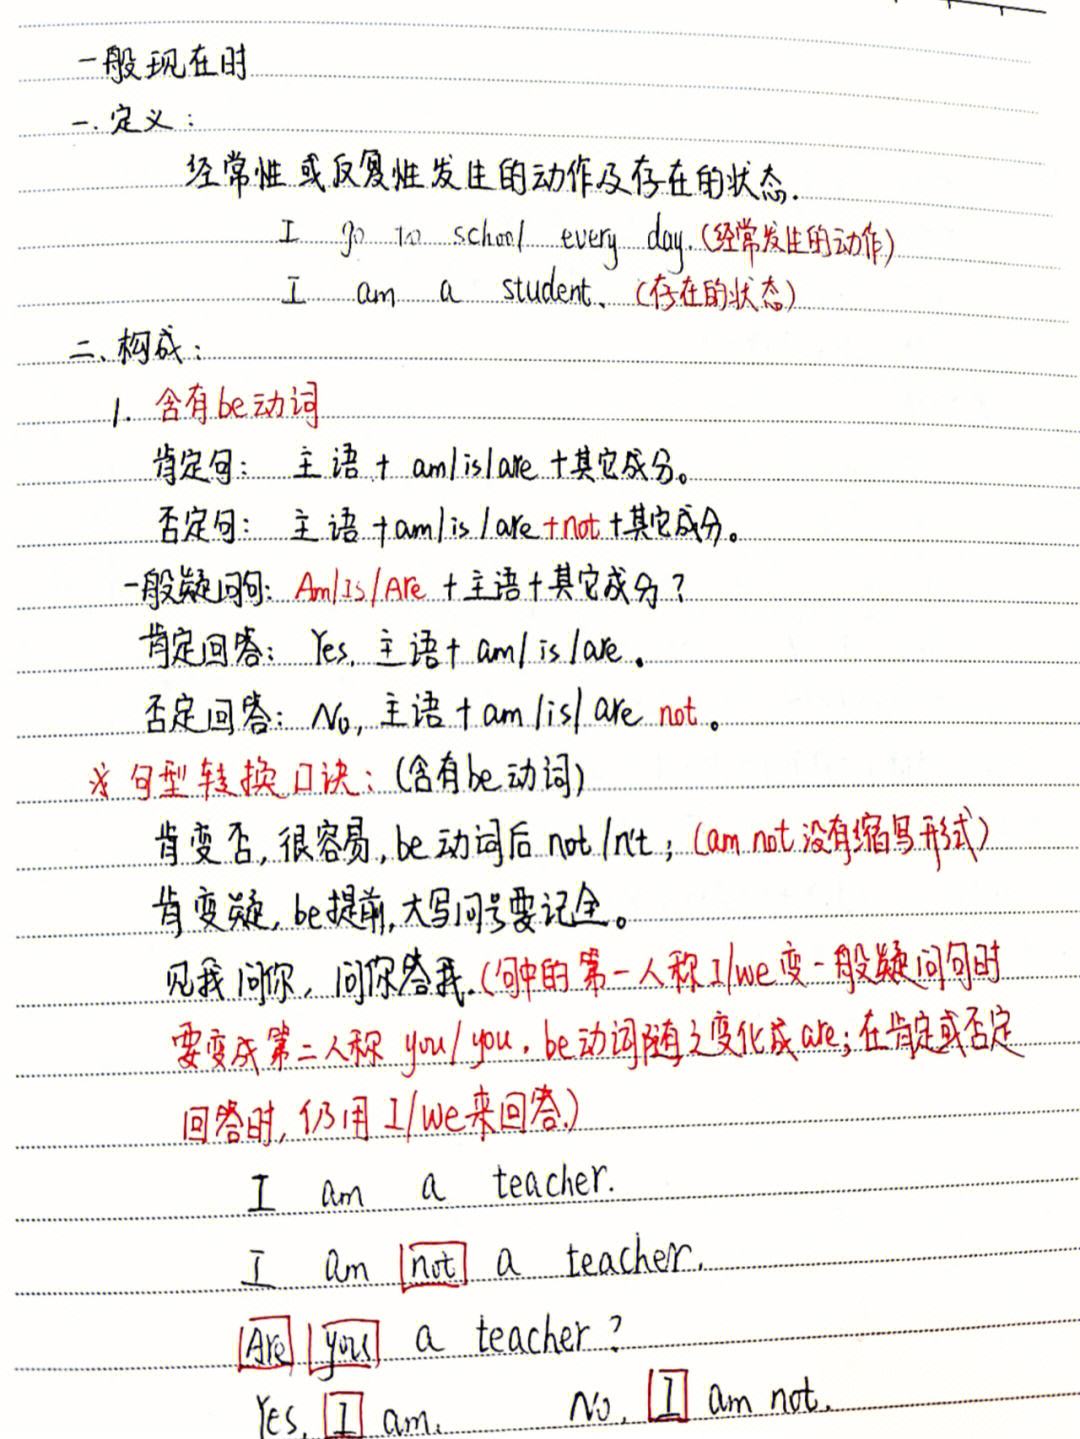 一般现在时
一.定义:
经常性或反复性发生的动作及存在的状态.
I go to school every day.(经常发生的动作)
I am a student、(存在的状态)
二、构成:
1. 含有be动词
肯定句: 主语+am/is/are+其它成分。
否定句: 主语+am/is/are+not+其它成分。
一般疑问句: Am/Is/Are+主语+其它成分?
肯定回答: Yes, 主语+am/is/are.
否定回答: No, 主语+am/is/are not。
※句型转换口诀:(含有be动词)
肯变否,很容易,be动词后not/n't;(am not没有缩写形式)
肯变疑,be提前,大写问号要记全。
见我问你,问你答我.(句中的第一人称I/we变一般疑问句时
要变成第二人称you/you,be动词随之变化成are;在肯定或否定
回答时,仍用I/we来回答.)
I am a teacher.
I am not a teacher.
Are you a teacher?
Yes, I am. No, I am not.